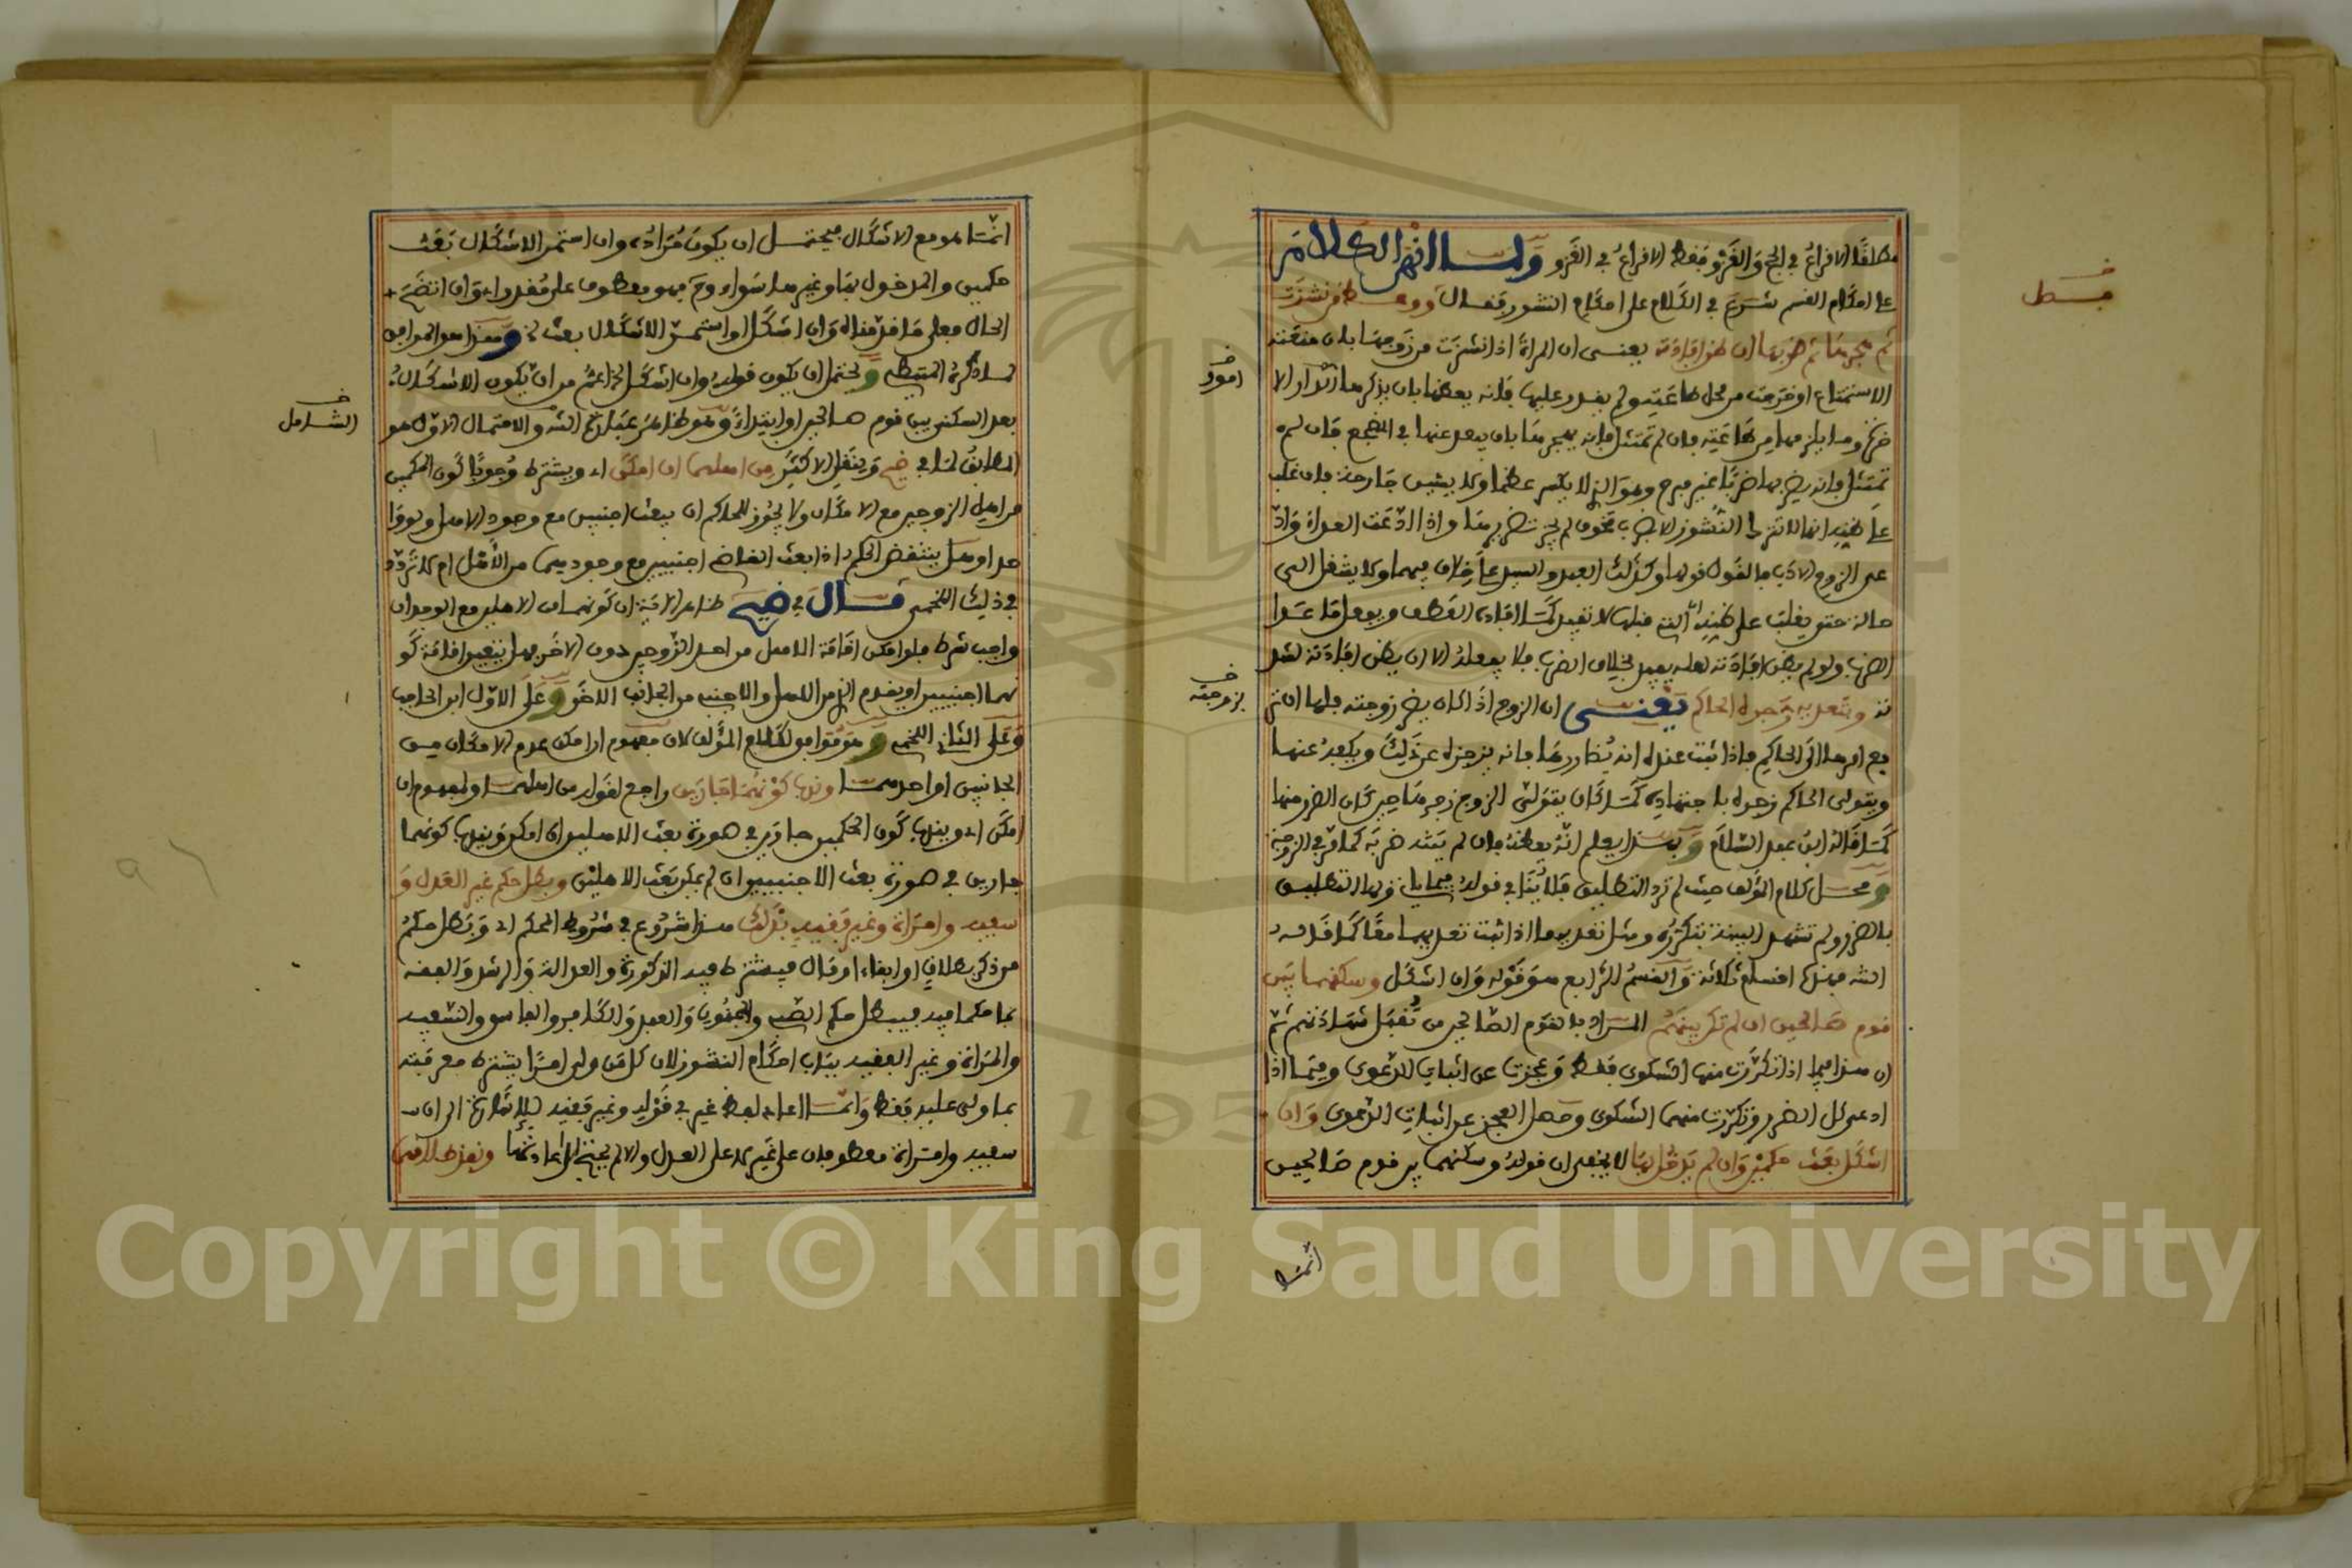 مطلقا الاقراع في الحج والغزو فقط الاقراع في الغزو ولما انهى الكلام
على احكام القسم شرع في الكلام على احكام النشوز فقال ووعظ من نشزت
ثم هجرها ثم ضربها ان ظن افادته يعني ان المراة اذا نشزت من زوجها بان منعته
الاستمتاع او خرجت من محل طاعته ولم يقدر عليها فانه يعظها بان يذكرها
فان لم تمتثل فانه يهجرها بان يبعد عنها في المضجع فان لم
تمتثل فانه يضربها ضربا غير مبرح وهو الذي لا يكسر عظما ولا يشين جارحة فان غلب
على ظنه انها لا تترك النشوز الا بضرب مخوف لم يجز تضريبها واذا ادعت العداء وادعى
على الزوج الادب فالقول قولها وكذلك العبد والسيد على خلاف فيهما ولا ينتقل الى
حالة حتى يغلب على ظنه ان التي قبلها لا تفيد كما افاده العطف ويفعل ما عدا
الضرب ولو لم يظن افادته لعله يفيد بخلاف الضرب فلا يفعله الا ان يظن افادته
وبتعديه زجره الحاكم يعني ان الزوج اذا كان يضر زوجته فلها ان ترفع
امرها الى الحاكم فاذا ثبت عنده انه يضاررها فانه يزجره عن ذلك ويكفه عنها
ويتولى الحاكم زجره باجتهاده كما كان يتولى الزوج زجرها حين كان الضرر منها
كما قاله ابن عبد السلام وبهذا يعلم انه يعظه فان لم يمتثل ضربه كما مر في الزوجة
ومحل كلام المؤلف حيث لم ترد التطليق فلا ينافي قوله فيما ياتي ولها التطليق
بالضرر ولو لم تشهد البينة بتكرره ومثل تعديه ما اذا ثبت تعديهما معا كما قاله
الش فهذه اقسام ثلاثة والقسم الرابع هو قوله وان اشكل وسكنهما بين
قوم صالحين ان لم تكن بينهم المراد بالقوم الصالحين من تقبل شهادتهم ثم
ان هذا فيما اذا تكررت منها الشكوى فقط وعجزت عن اثبات الدعوى وفيما اذا
ادعى كل الضرر وتكررت منهما الشكوى وحصل العجز عن اثبات الدعوى وان
اشكل بعث حكمين وان لم يدخل بها لا يخفى ان قوله وسكنهما بين قوم صالحين
انما
بسط
امور
بزوجته
انما هو مع الاشكال فيحتمل ان يكون مراده وان استمر الاشكال بعث
حكمين والمدخول بها وغيرها سواء وح فهو معطوف على مقدر اي وان اتضح
الحال فعلى ما مر وان اشكل او استمر الاشكال بعث الخ وهذا هو الموافق
لما ذكره المتيطي ويحتمل ان يكون قوله وان اشكل الخ اعم من ان يكون الاشكال
بعد السكنى بين قوم صالحين او ابتداء وهو ظاهر عبارة الش والاحتمال الاول هو
المطابق لما في ضيح وينقل الاكثر من اهلهما ان امكن اي ويشترط وجوبا كون الحكمين
من اهل الزوجين مع الامكان ولا يجوز للحاكم ان يبعث اجنبيين مع وجود الاهل
وهل ينتقض الحكم اذا بعث القاضي اجنبيين مع وجودهما من الاهل ام لا تردد
في ذلك اللخمي قال في ضيح ظاهر الاية ان كونهما من الاهل مع الوجدان
واجب شرط فلو امكن اقامة الاهل من احد الزوجين دون الاخر فهل يتعين اقامته
كونهما اجنبيين او يقدم الذي من الاهل والاجنبي من الجانب الاخر وعلى الاول ابن الحاجب
وعلى الثاني اللخمي وهو موافق لكلام المؤلف لان مفهوم ان امكن عدم الامكان من
الجانبين او احدهما وندب كونهما جارين راجع لقوله من اهلهما ولمفهوم ان
امكن اي ويندب كون الحكمين جارين في صورة بعث الاهلين ان امكن ويندب كونهما
جارين في صورة بعث الاجنبيين ان لم يمكن بعث الاهلين وبطل حكم غير العدل و
سفيه وامراة وغير فقيه بذلك هذا شروع في شروط الحكم اي وبطل حكم
من ذكر بطلاق او ابقاء او مال فيشترط فيه الذكورة والعدالة والرشد والفقه
بما حكما فيه فيبطل حكم الصبي والمجنون والعبد والكافر والفاسق والسفيه
والمراة وغير الفقيه بباب احكام النشوز لان كل من ولي امرا يشترط معرفته
بما ولي عليه فقط وانما اعاد لفظ غير في قوله وغير فقيه
سفيه وامراة معطوفان على غير لا على العدل والا لم يحتج الى اعادتها ونفذ طلاقهما
الشامل